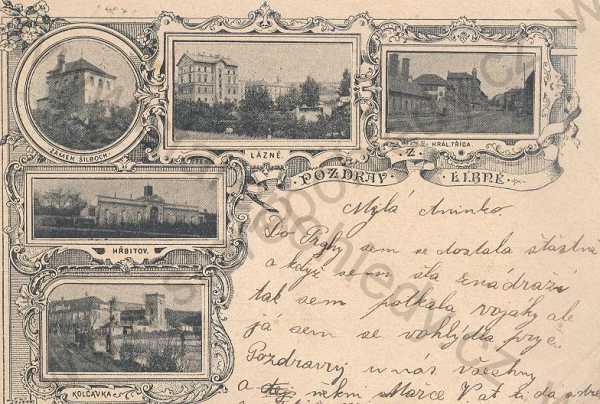 ZÁMEK ŠILBOCH
LÁZNĚ.
KRÁL. TŘÍDA.
POZDRAV Z LIBNĚ.
HŘBITOV.
KOLČAVKA
Milá Aninko.
Do Prahy sem se dostala šťastně
a když sem šla z nádraží
tak sem potkala vojáky ale
já sem se vohlýdla pryč.
Pozdravuj u nás všechny
a řekni Mařce V. at ti dá